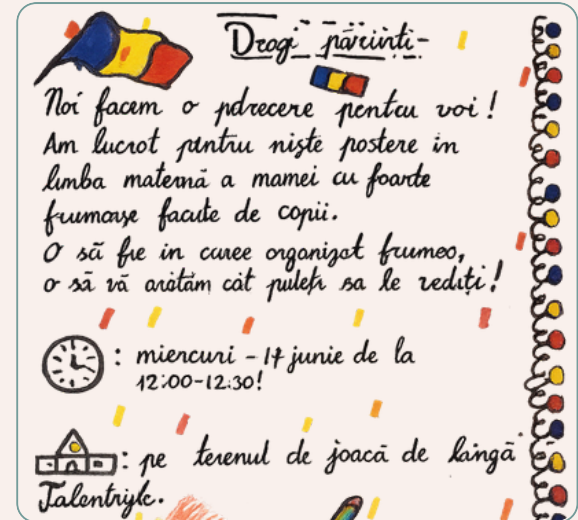 Dragi părcinti-
Noi facem o pdrecere pentcu voi!
Am lucrot ptntru niște postere in
limba maternă a mamei cu foarte
frumoase facute de copii.
O să fie in curee organizat frumeo,
o să vă arătăm cât puleți sa le vediți!
: miercuri - 17 junie de la
12:00-12:30!
: pe terenul de joacă de lângă
Talentryk.